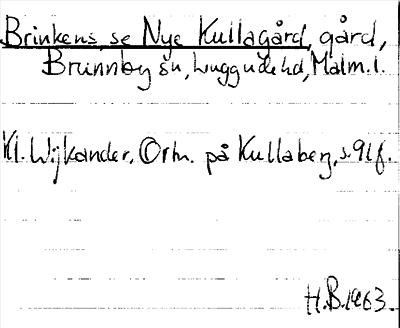 Brinkens, se Nye Kullagård, gård,
Brunnby sn, Luggude hd, Malm.l.
Kl. Wijkander, Ortn. på Kullaberg, s. 91f.
H.B. 1963.